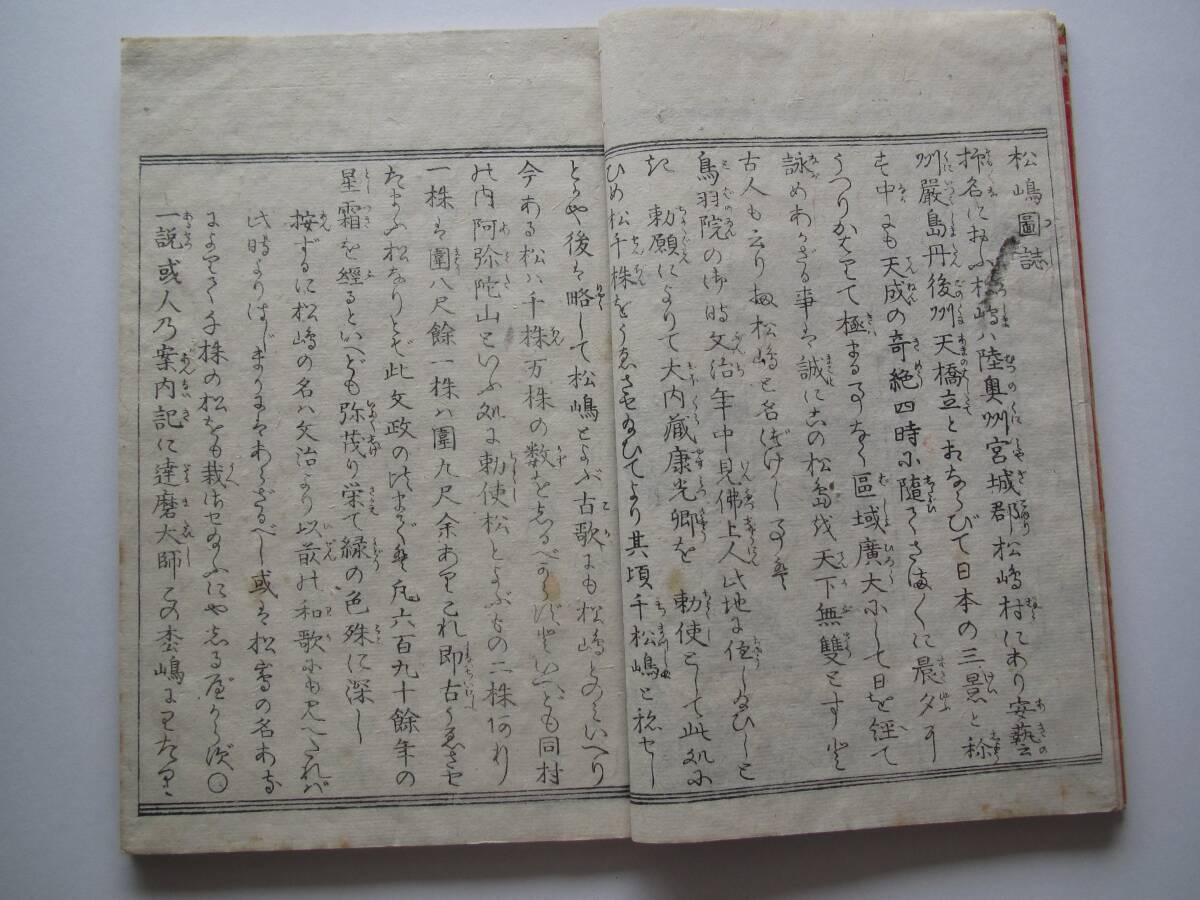 松嶋圖誌
抑名におふ松嶋ハ陸奥州宮城郡松嶋村にあり安藝
州嚴島丹後州天橋立とおならびて日本の三景と称
す中にも天成の奇絶四時に隨てさま〲に晨夕に
うつりかはりて極まる事なく區域廣大にして日を経て
詠めあかざる事は誠に此の松島を天下無雙とす
古人も云り松嶋と名づけし事は
鳥羽院の御時文治年中見佛上人此地に住し給ひしと
き 勅願によりて大内蔵康光卿を 勅使として此処に
ひめ松千株をうゑさせ給ひてより其頃千松嶋と称せし
とかや後は略して松嶋とよぶ古歌にも松嶋とのミいへり
今ある松ハ千株万株の数をしるべからずといへども同村
の内阿弥陀山といふ処に勅使松とよぶもの二株あり
一株は圍八尺餘一株ハ圍九尺余ありこれ即古うゑさせ
たまふ松なりとぞ此文政の頃まで凡六百九十餘年の
星霜を經るといへども弥茂り栄て緑の色殊に深し
按ずるに松嶋の名ハ文治より以前の和歌にも見へたれバ
此時よりはじまるにはあらざるべし或は松嶌の名ある
によりて千株の松をも栽させ給ふにやしるべからず〇
一説或人乃案内記に達磨大師この松嶋にわたり